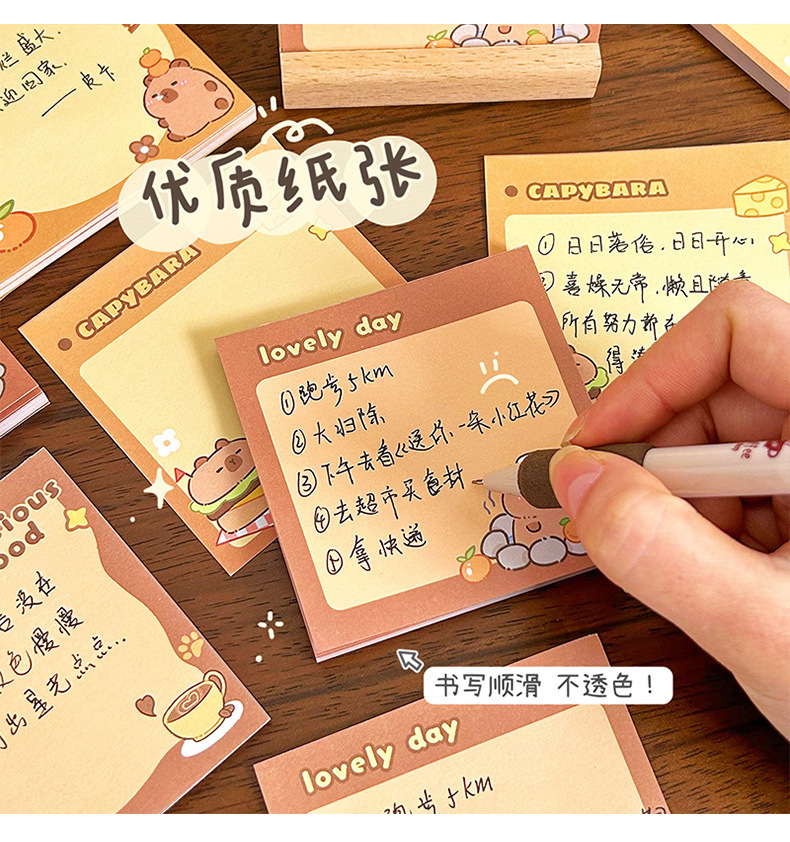 盛大.
迎回家.
——皮卡
优质纸张
CAPYBARA
CAPYBARA
① 日日落俗,日日开心.
② 喜燥无常.懒且随意
所有努力都在
得
lovely day
①跑步5km
②大扫除
③下午去看《送你一朵小红花》
④去超市买食材
⑤拿快递
ood
没在
色慢慢
出星光点点...
书写顺滑 不透色！
lovely day
跑步5km